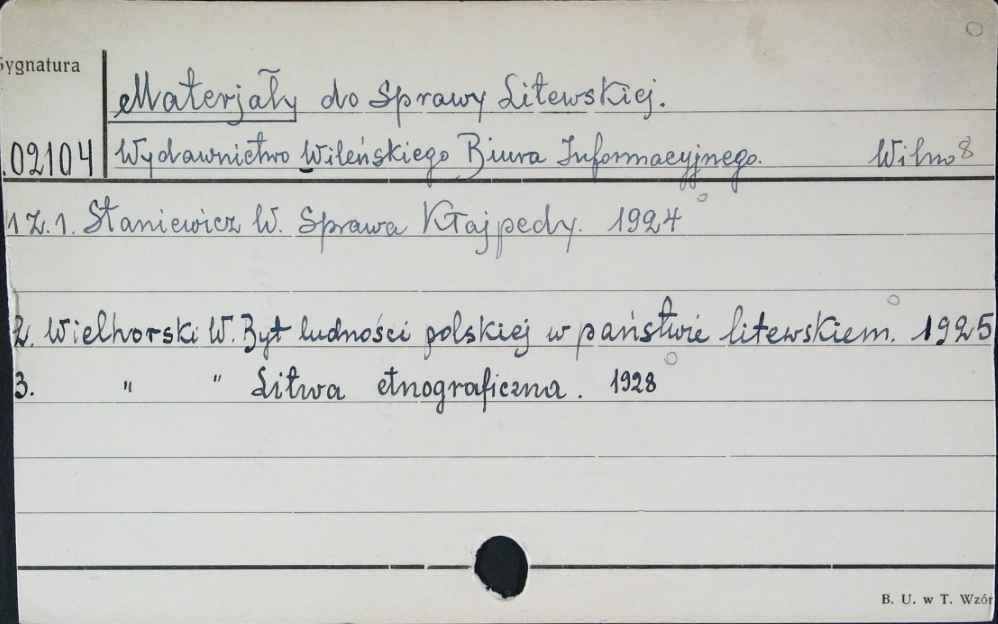 Sygnatura
Materjały do Sprawy Litewskiej.
02104 Wydawnictwo Wileńskiego Biura Informacyjnego. Wilno 8
1 Z. 1. Staniewicz W. Sprawa Kłajpedy. 1924
2. Wielhorski W. Byt ludności polskiej w państwie litewskiem. 1925
3. " " Litwa etnograficzna. 1928
B. U. w T. Wzór